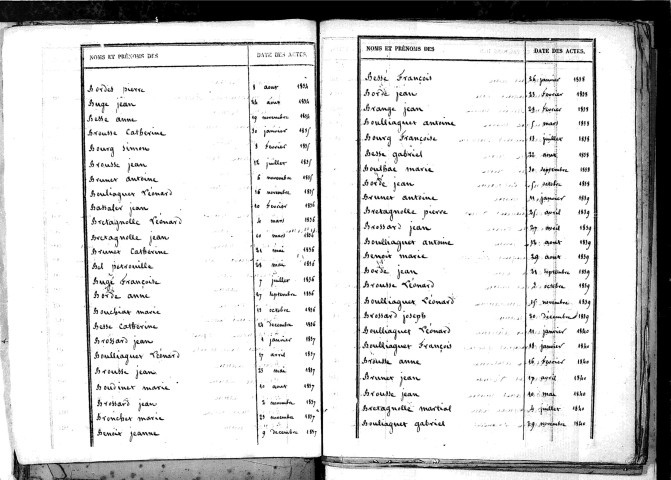 NOMS ET PRÉNOMS DES DATE DES ACTES.
Bordes pierre 1 aout 1834
Buge jean 24 aout 1834
Besse anne 29 novembre 1834
Brousse Catherine 30 janvier 1835
Bourg simon 8 fevrier 1835
Brousse jean 12 juillet 1835
Brunet antoine 6 novembre 1835
Bouliaguet Léonard 16 novembre 1835
Bassaler jean 10 fevrier 1836
Bretagnolle Léonard 4 mars 1836
Bretagnolle jean 10 mars 1836
Brunet Catherine 21 mai 1836
Bel petronille 24 mai 1836
Buge Françoise 7 juillet 1836
Borde anne 27 septembre 1836
Bouchiat marie 12 octobre 1836
Besse Catherine 24 decembre 1836
Brossard jean 1 janvier 1837
Boulliaguet Léonard 17 avril 1837
Brousse jean 25 mai 1837
Boudinet marie 10 aout 1837
Brossard jean 2 novembre 1837
Bronchet marie 23 novembre 1837
Benoit jeanne 9 decembre 1837
NOMS ET PRÉNOMS DES DATE DES ACTES.
Besse François 26 janvier 1838
Borde jean 23 fevrier 1838
Brange jean 28 fevrier 1838
Boulliaguet antoine 5 mars 1838
Bourg Françoise 12 juillet 1838
Besse gabriel 22 aout 1838
Boulbac marie 30 septembre 1838
Borde jean 15 octobre 1838
Brunet antoine 11 janvier 1839
Bretagnolle pierre 25 avril 1839
Brossard jean 27 avril 1839
Boulliaguet antoine 12 aout 1839
Benoit marie 29 aout 1839
Borde jean 21 septembre 1839
Brousse Léonard 2 octobre 1839
Boulliaguet Léonard 15 novembre 1839
Brossard joseph 20 décembre 1839
Boulliaguet Léonard 11 janvier 1840
Boulliaguet François 18 janvier 1840
Brousse anne 16 fevrier 1840
Brunet jean 17 avril 1840
Brousse jean 10 mai 1840
Bretagnolle martial 4 juillet 1840
Bouliaguet gabriel 29 novembre 1840